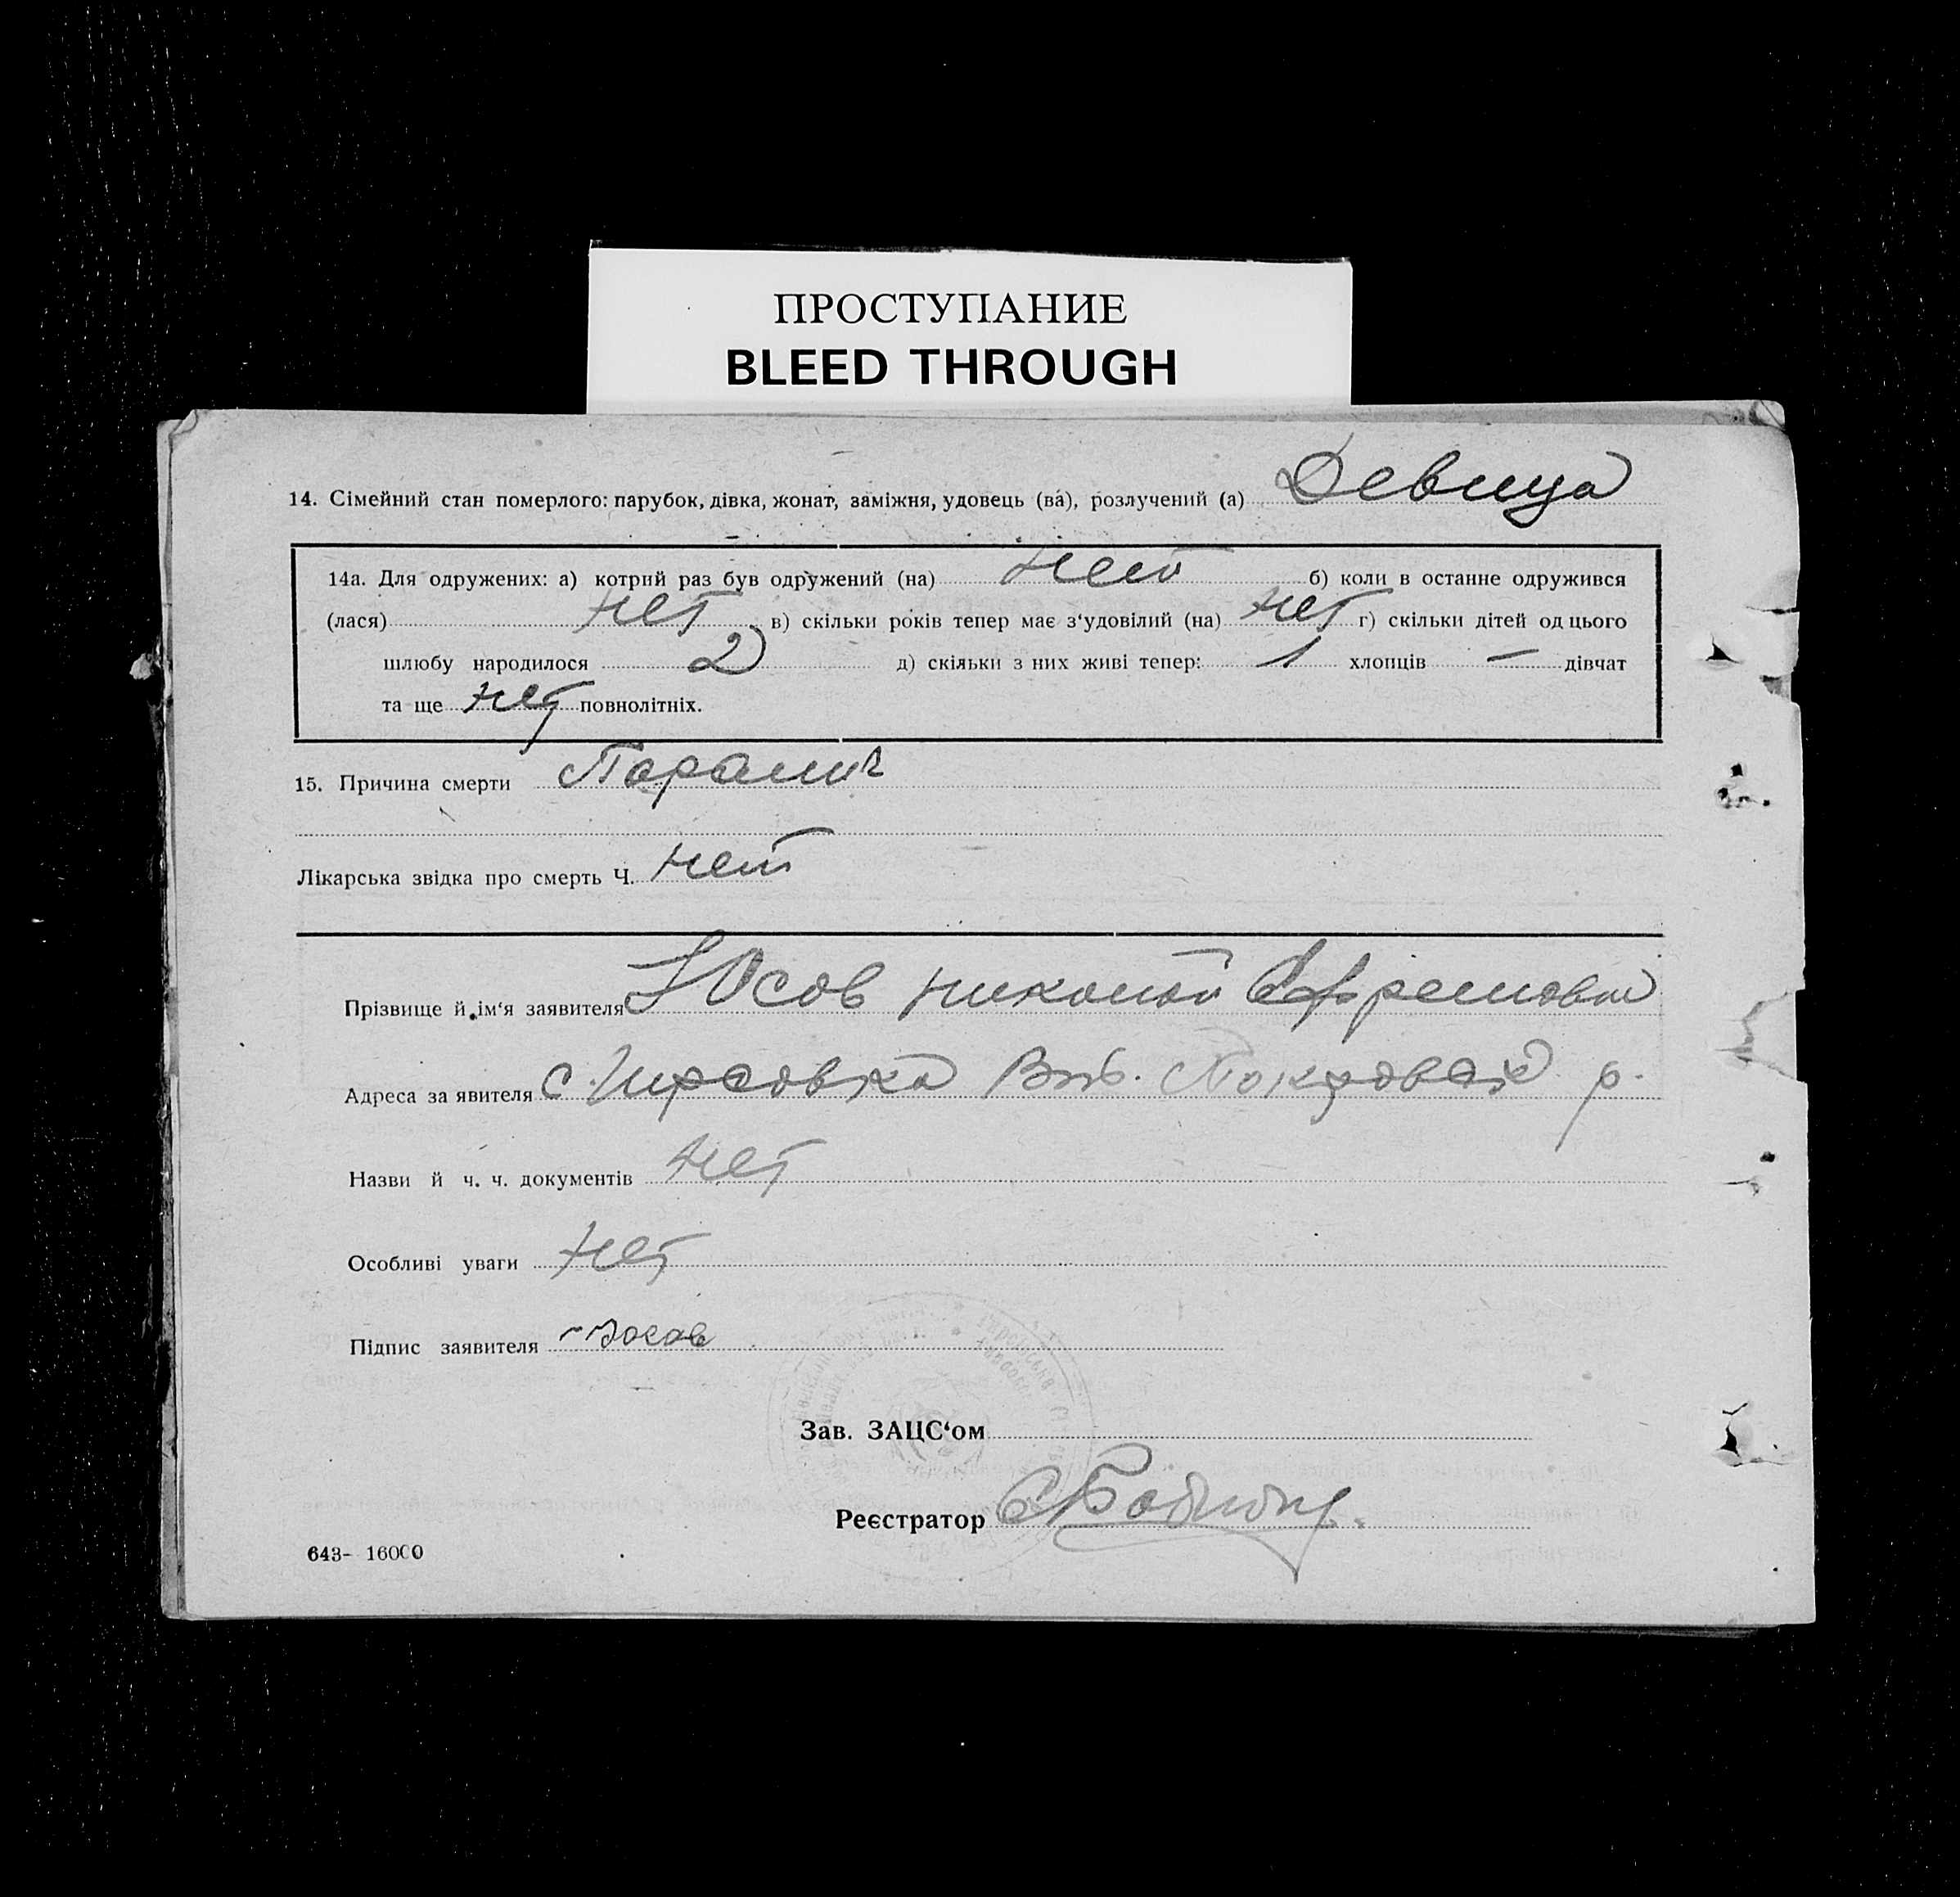 ПРОСТУПАНИЕ
BLEED THROUGH
14. Сімейний стан померлого: парубок, дівка, жонат, заміжня, удовець (ва), розлучений (а) Девица
14а. Для одружених: а) котрий раз був одружений (на) нет б) коли в останне одружився
(лася) нет в) скільки років тепер має з‘удовілий (на) нет г) скільки дітей од цього
шлюбу народилося 2 д) скільки з них живі тепер: 1 хлопців — дівчат
та ще нет повнолітніх.
15. Причина смерти Паралич
Лікарська звідка про смерть Ч. нет
Прізвище й ім‘я заявителя Юсов Николай Ефремович
Адреса за явителя с Кирсовка Покровск р.
Назви й ч. ч. документів нет
Особливі уваги нет
Підпис заявителя Юсов
Зав. ЗАЦС‘ом
Реєстратор
643- 16000